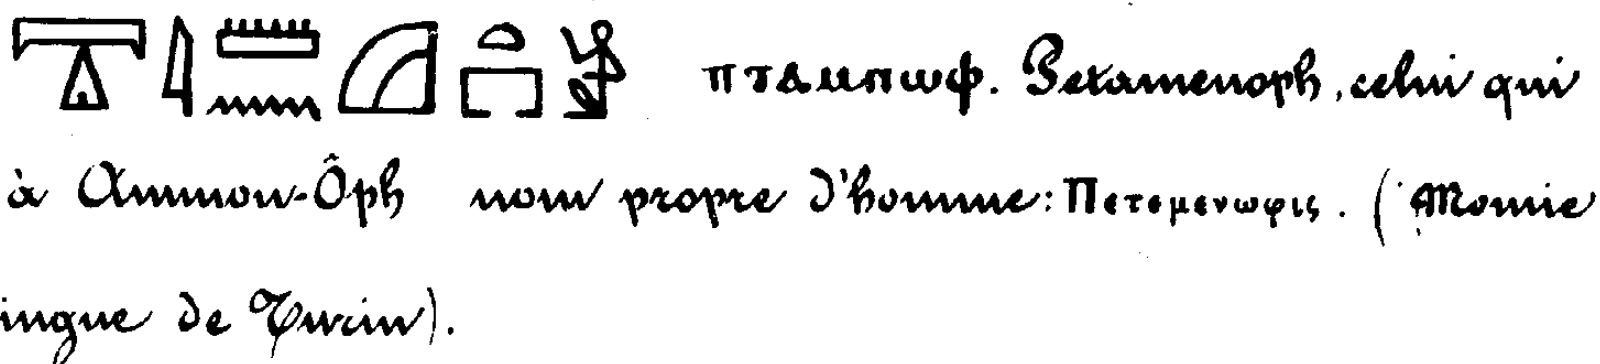 ⲡⲧⲁⲙⲛⲱⲫ. Petamenoph, celui qui
à Ammon-Ôph nom propre d'homme: Πετεμενωφις. (Momie
ingue de Turin).